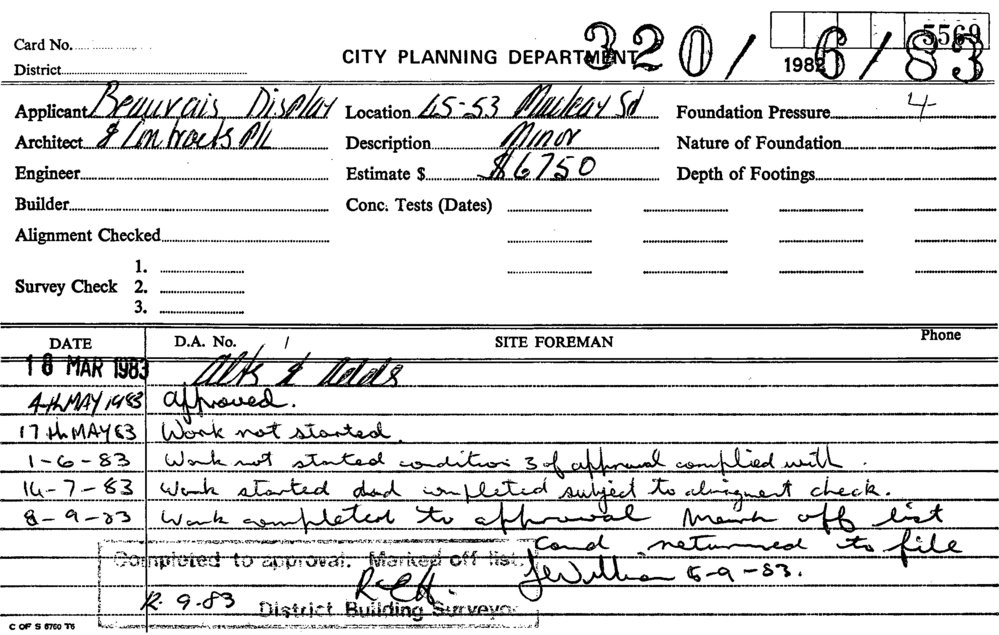 5569
Card No.
CITY PLANNING DEPARTMENT 320/6/83
1982
District
Applicant Beauvais Display Location 45-53 Macleay St Foundation Pressure 4
Architect & Contracts P/L Description Minor Nature of Foundation
Engineer Estimate $ $6750 Depth of Footings
Builder Conc. Tests (Dates)
Alignment Checked
1.
Survey Check 2.
3.
DATE D.A. No. / SITE FOREMAN Phone
18 MAR 1983 Alts & Adds
4th MAY 1983 Approved.
17th MAY 83 Work not started.
1-6-83 Work not started condition 3 of approval complied with.
14-7-83 Work started and completed subject to alignment check.
8-9-83 Work completed to approval Mark off list
Card returned to file
Completed to approval. Marked off list.
8-9-83.
9-83 District Building Surveyor
C OF S 6760 T6